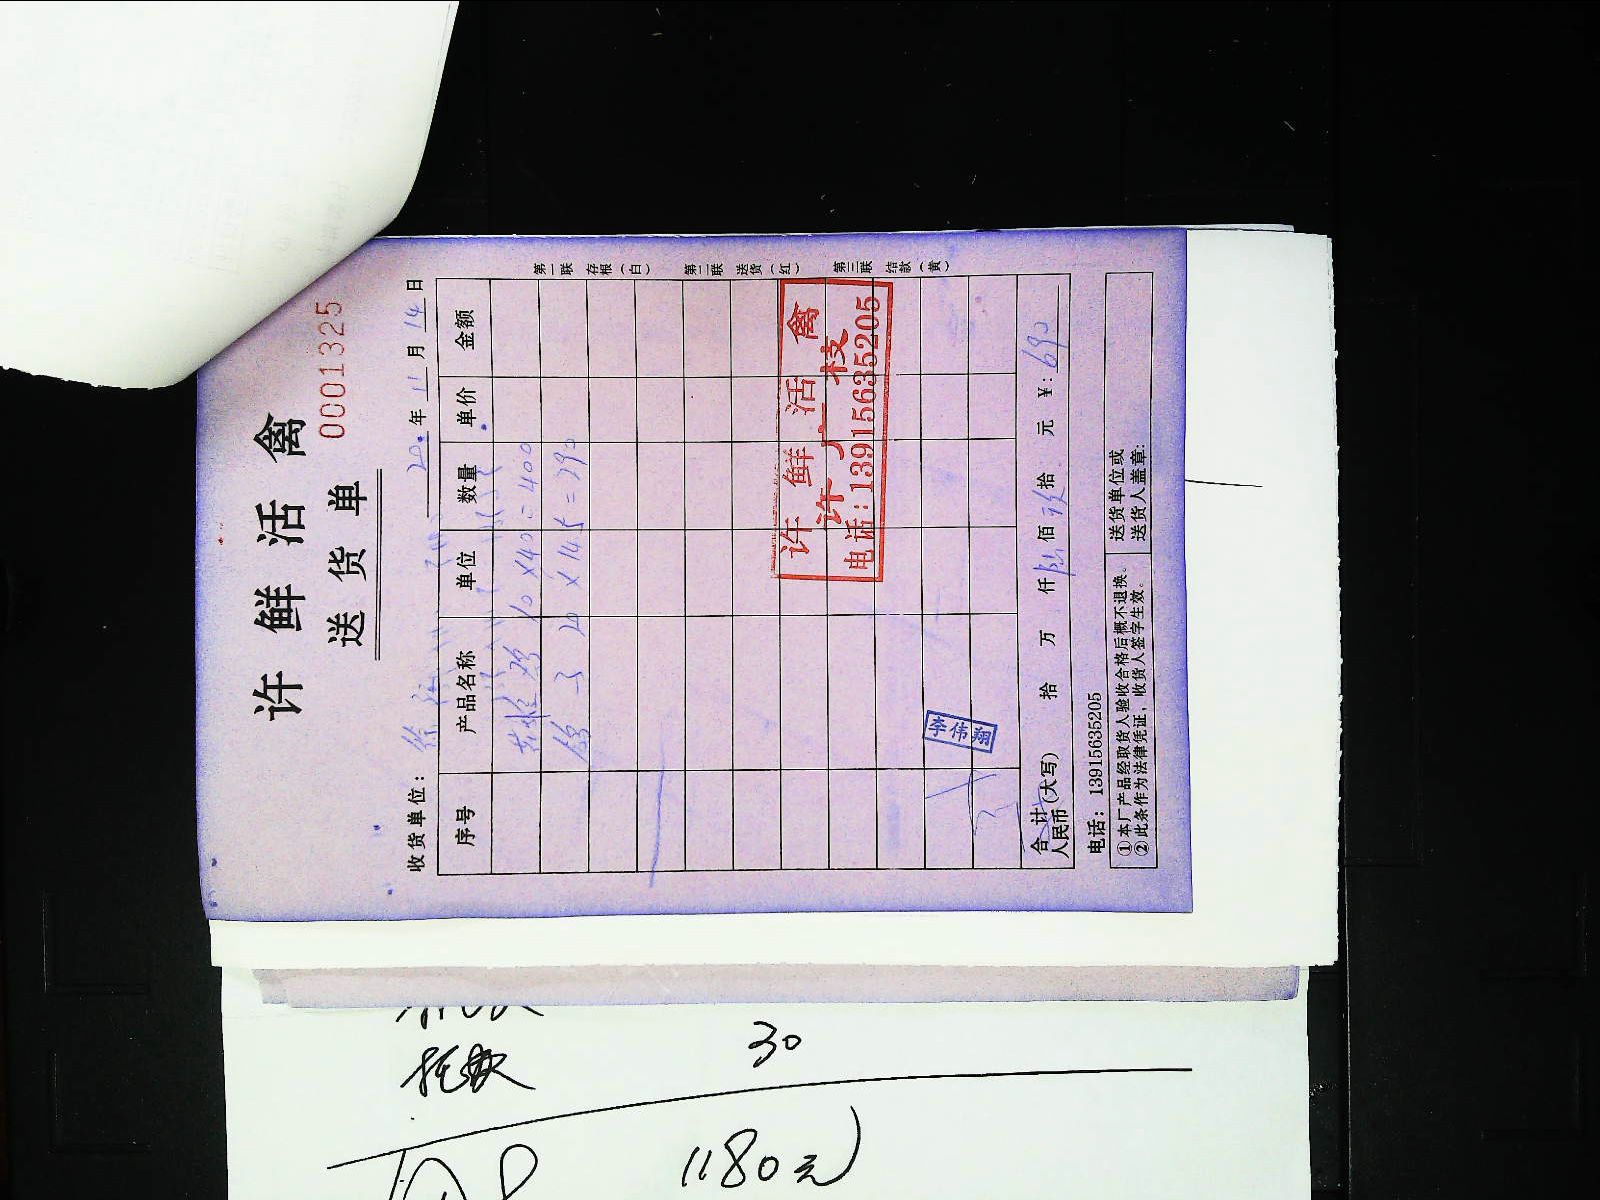 许鲜活禽
送货单
0001325
收货单位：
20年11月14日
序号 产品名称 单位 数量 单价 金额
10×40=400
鸽子 20×14.5=290
第一联 存根（白） 第二联 送货（红） 第三联 结款（黄）
许鲜活禽
许广枝
电话：13915635205
李伟翔
合计人民币（大写） 拾 万 仟 陆 佰 玖 拾 元 ¥：690
电话：13915635205
①本厂产品经取货人验收合格后概不退换。
②此条作为法律凭证，收货人签字生效。
送货单位或
送货人盖章：
30
1180元